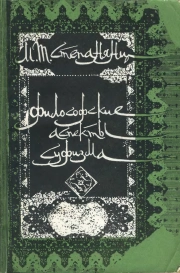 М.Т. Степанянц
Философские
аспекты
суфизма